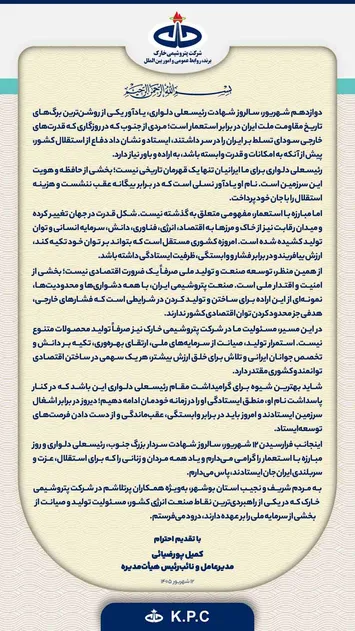 شرکت پتروشیمی خارک
برند، روابط عمومی و امور بین الملل
بسم الله الرحمن الرحیم
دوازدهم شهریور، سالروز شهادت رئیسعلی دلواری، یادآور یکی از روشن‌ترین برگ‌های
تاریخ مقاومت ملت ایران در برابر استعمار است؛ مردی از جنوب که در روزگاری که قدرت‌های
خارجی سودای تسلط بر ایران را در سر داشتند، ایستاد و نشان داد دفاع از استقلال کشور،
پیش از آنکه به امکانات و قدرت وابسته باشد، به اراده و باور نیاز دارد.
رئیسعلی دلواری برای ما ایرانیان تنها یک قهرمان تاریخی نیست؛ بخشی از حافظه و هویت
این سرزمین است. نام او یادآور نسلی است که در برابر بیگانه عقب ننشست و هزینه
استقلال را با جان خود پرداخت.
اما مبارزه با استعمار، مفهومی متعلق به گذشته نیست. شکل قدرت در جهان تغییر کرده
و میدان رقابت نیز از خاک و مرزها به اقتصاد، انرژی، فناوری، دانش، سرمایه انسانی و توان
تولید کشیده شده است. امروزه کشوری مستقل است که بتواند بر توان خود تکیه کند،
ارزش بیافریند و در برابر فشار و وابستگی، ظرفیت ایستادگی داشته باشد.
از همین منظر، توسعه صنعت و تولید ملی صرفاً یک ضرورت اقتصادی نیست؛ بخشی از
امنیت و اقتدار ملی است. صنعت پتروشیمی ایران، با همه دشواری‌ها و محدودیت‌ها،
نمونه‌ای از این اراده برای ساختن و تولید کردن در شرایطی است که فشارهای خارجی،
هدفی جز محدود کردن توان اقتصادی کشور ندارند.
در این مسیر، مسئولیت ما در شرکت پتروشیمی خارک نیز صرفاً تولید محصولات متنوع
نیست. استمرار تولید، صیانت از سرمایه‌های ملی، ارتقای بهره‌وری، تکیه بر دانش و
تخصص جوانان ایرانی و تلاش برای خلق ارزش بیشتر، هر یک سهمی در ساختن اقتصادی
توانمند و کشوری مقتدر دارد.
شاید بهترین شیوه برای گرامیداشت مقام رئیسعلی دلواری این باشد که در کنار
پاسداشت نام او، منطق ایستادگی او را در زمانه خودمان ادامه دهیم؛ دیروز در برابر اشغال
سرزمین ایستادند و امروز باید در برابر وابستگی، عقب‌ماندگی و از دست دادن فرصت‌های
توسعه ایستاد.
اینجانب فرارسیدن ۱۲ شهریور، سالروز شهادت سردار بزرگ جنوب، رئیسعلی دلواری و روز
مبارزه با استعمار را گرامی می‌دارم و یاد همه مردان و زنانی را که برای استقلال، عزت و
سربلندی ایران جان ایستادند، پاس می‌دارم.
به مردم شریف و نجیب استان بوشهر، به‌ویژه همکاران پرتلاشم در شرکت پتروشیمی
خارک که در یکی از راهبردی‌ترین نقاط صنعت انرژی کشور، مسئولیت تولید و صیانت از
بخشی از سرمایه ملی را بر عهده دارند، درود می‌فرستم.
با تقدیم احترام
کمیل پورضیائی
مدیرعامل و نائب رئیس هیأت‌مدیره
۱۲ شهریور ۱۴۰۵
K.P.C